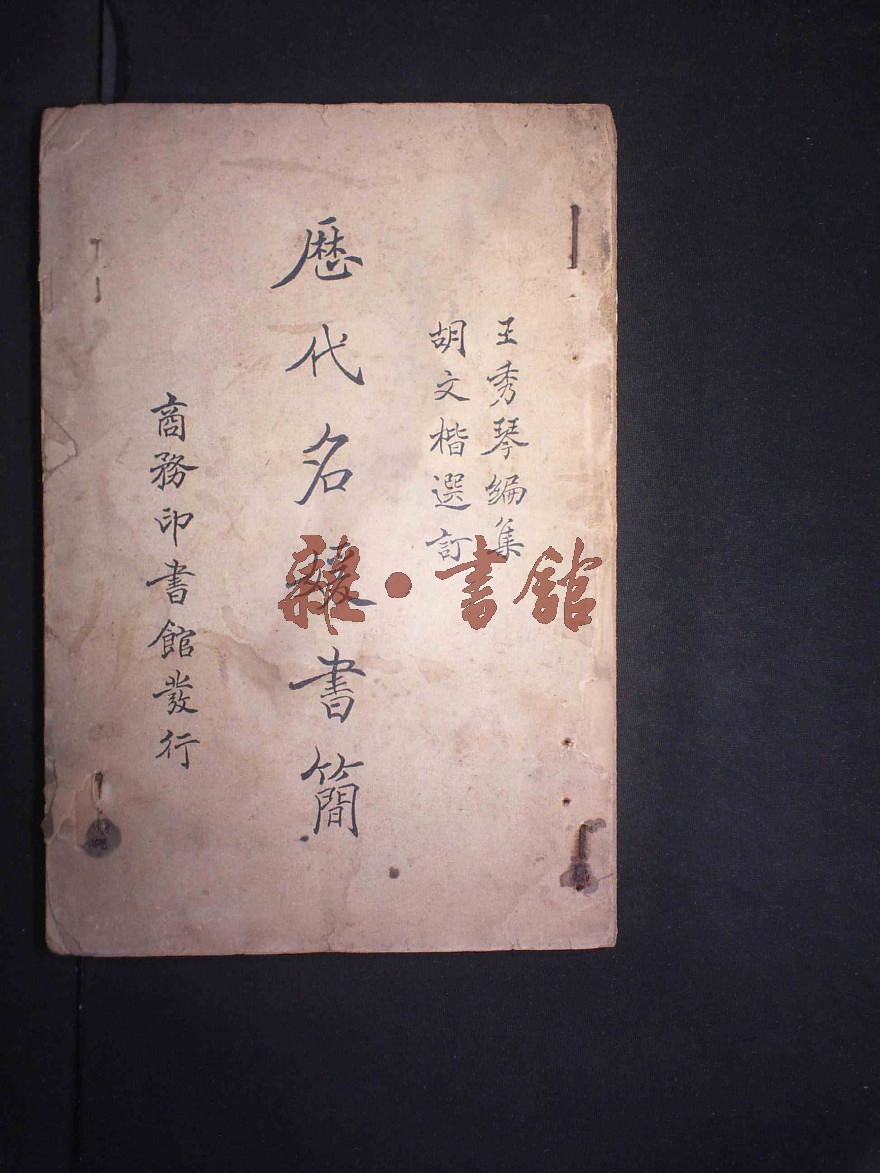 王秀琴編集
胡文楷選訂
歷代名媛書簡
商務印書館發行
雜·書館